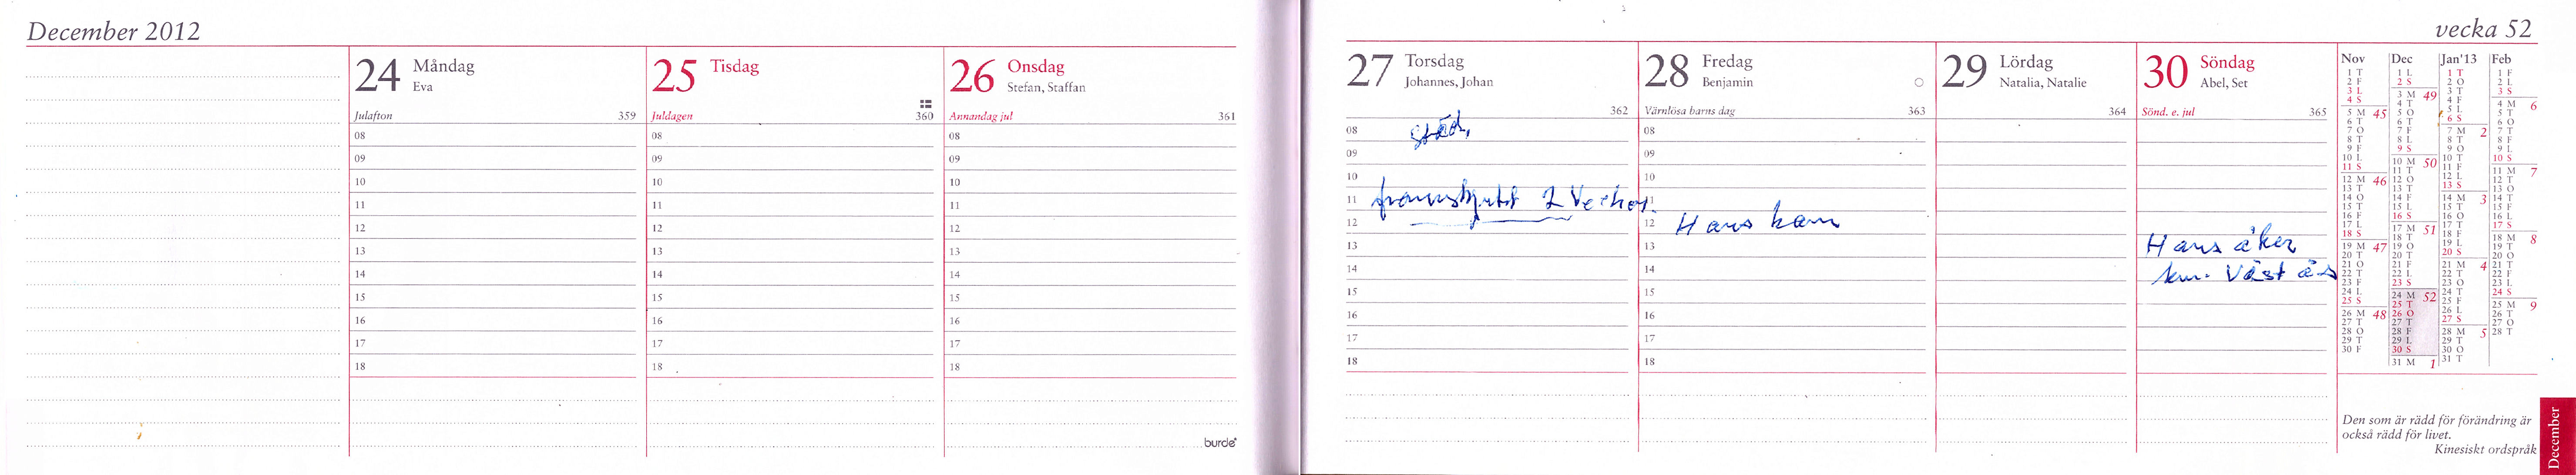 December 2012
24 Måndag
Eva
Julafton 359
08
09
10
11
12
13
14
15
16
17
18
25 Tisdag
Juldagen 360
08
09
10
11
12
13
14
15
16
17
18
26 Onsdag
Stefan, Staffan
Annandag jul 361
08
09
10
11
12
13
14
15
16
17
18
burde
vecka 52
27 Torsdag
Johannes, Johan
362
08 städ,
09
10
11 framskjutit 2 Veckor
12
13
14
15
16
17
18
28 Fredag
Benjamin
Värnlösa barns dag 363
08
09
10
11
12 Hans kam
13
14
15
16
17
18
29 Lördag
Natalia, Natalie
364
30 Söndag
Abel, Set
Sönd. e. jul 365
Hans åker
Väst ås
Nov
1 T
2 F
3 L
4 S
5 M 45
6 T
7 O
8 T
9 F
10 L
11 S
12 M 46
13 T
14 O
15 T
16 F
17 L
18 S
19 M 47
20 T
21 O
22 T
23 F
24 L
25 S
26 M 48
27 T
28 O
29 T
30 F
Dec
1 L
2 S
3 M 49
4 T
5 O
6 T
7 F
8 L
9 S
10 M 50
11 T
12 O
13 T
14 F
15 L
16 S
17 M 51
18 T
19 O
20 T
21 F
22 L
23 S
24 M 52
25 T
26 O
27 T
28 F
29 L
30 S
31 M 1
Jan'13
1 T
2 O
3 T
4 F
5 L
6 S
7 M 2
8 T
9 O
10 T
11 F
12 L
13 S
14 M 3
15 T
16 O
17 T
18 F
19 L
20 S
21 M 4
22 T
23 O
24 T
25 F
26 L
27 S
28 M 5
29 T
30 O
31 T
Feb
1 F
2 L
3 S
4 M 6
5 T
6 O
7 T
8 F
9 L
10 S
11 M 7
12 T
13 O
14 T
15 F
16 L
17 S
18 M 8
19 T
20 O
21 T
22 F
23 L
24 S
25 M 9
26 T
27 O
28 T
Den som är rädd för förändring är
också rädd för livet.
Kinesiskt ordspråk
December